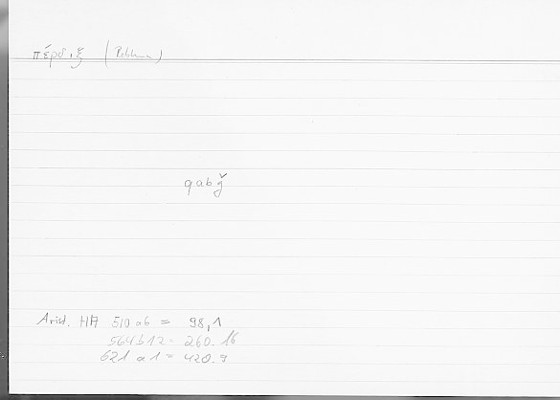 πέρδιξ (Rebhuhn)
qabǧ
Arist. HA 510 a6 = 98,1
564b12 = 260.16
621 a1 = 420.9